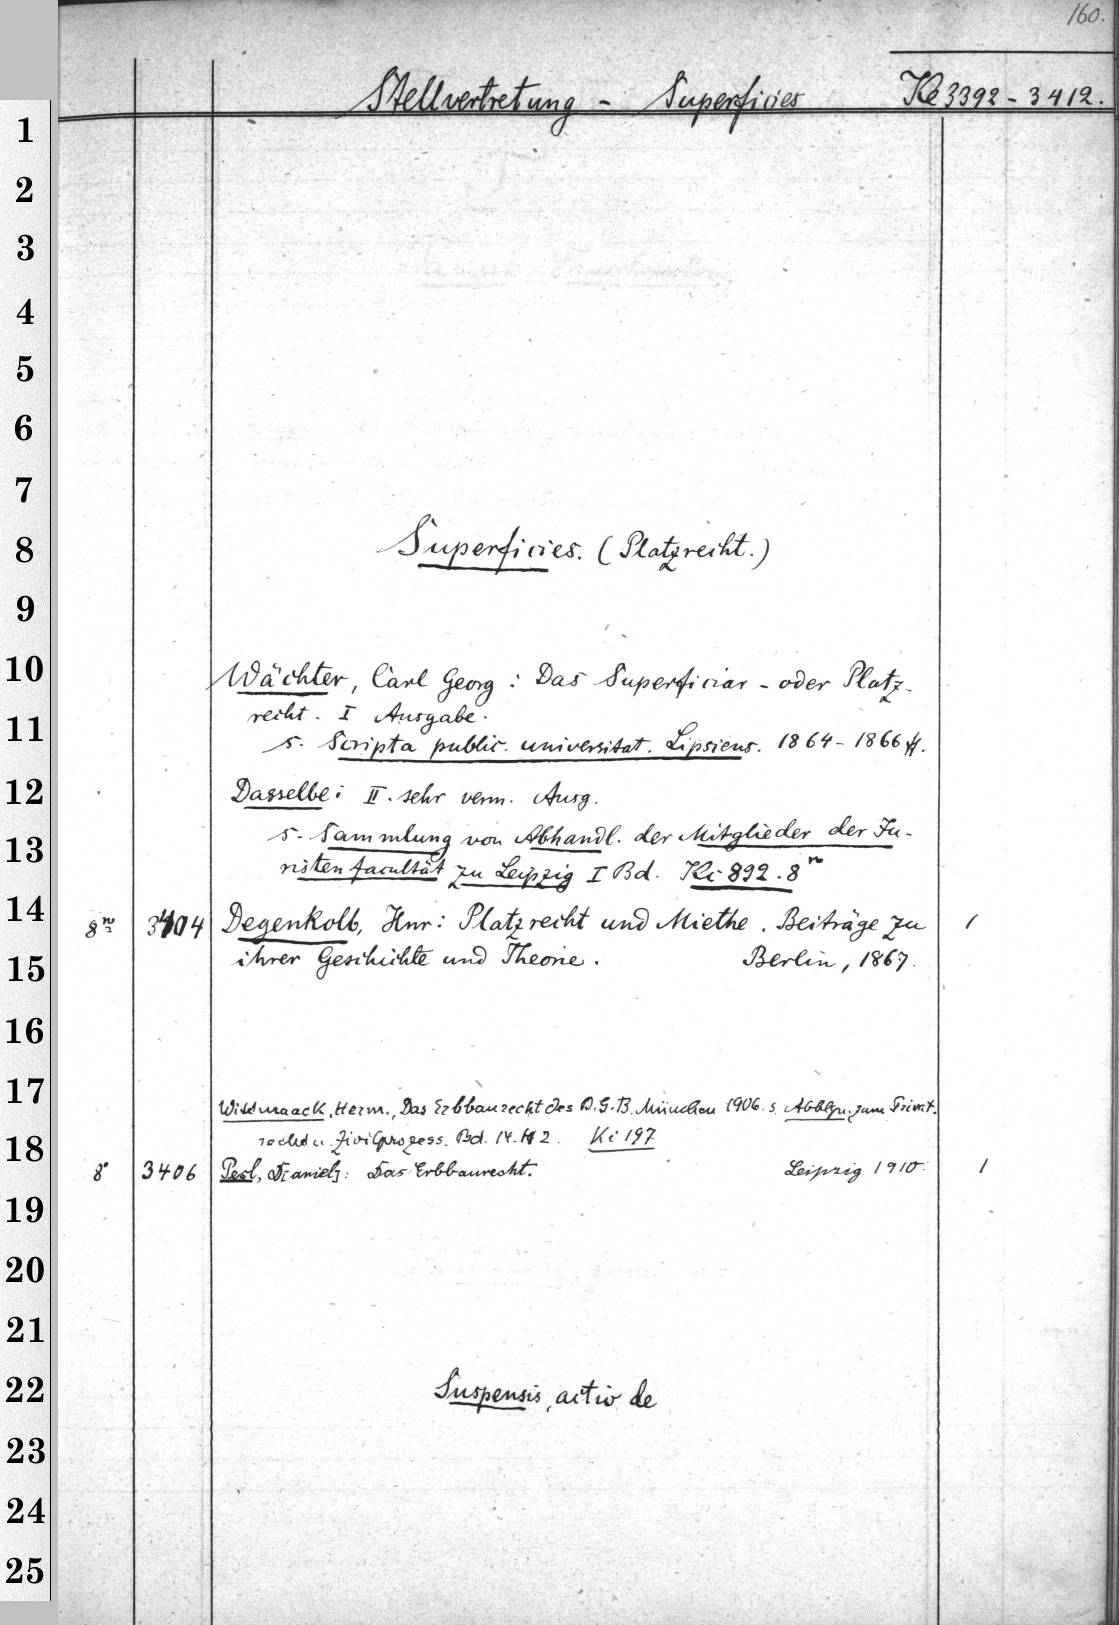 160.
Stellvertretung - Superficies Ke 3392 - 3412.
1
2
3
4
5
6
7
8 Superficies. (Platzrecht.)
9
10 Wächter, Carl Georg : Das Superficiar - oder Platz-
recht. I Ausgabe.
11 s. Scripta public. universitat. Lipsiens. 1864 - 1866 ff.
12 Dasselbe: II. sehr verm. Ausg.
13 s. Sammlung von Abhandl. der Mitglieder der Ju-
ristenfacultät zu Leipzig I Bd. Ki 892. 8º
14 8º 3404 Degenkolb, Hnr: Platzrecht und Miethe. Beiträge zu 1
15 ihrer Geschichte und Theorie. Berlin, 1867.
16
17 Wissmaack, Herm., Das Erbbaurecht des B.G.B. München 1906. s. Abhlgn. zum Privat-
18 recht u. Zivilprozess. Bd. 14. H 2. Ki 197
8º 3406 Pesl, D[aniel]: Das Erbbaurecht. Leipzig 1910. 1
19
20
21
22 Suspensis, actio de
23
24
25